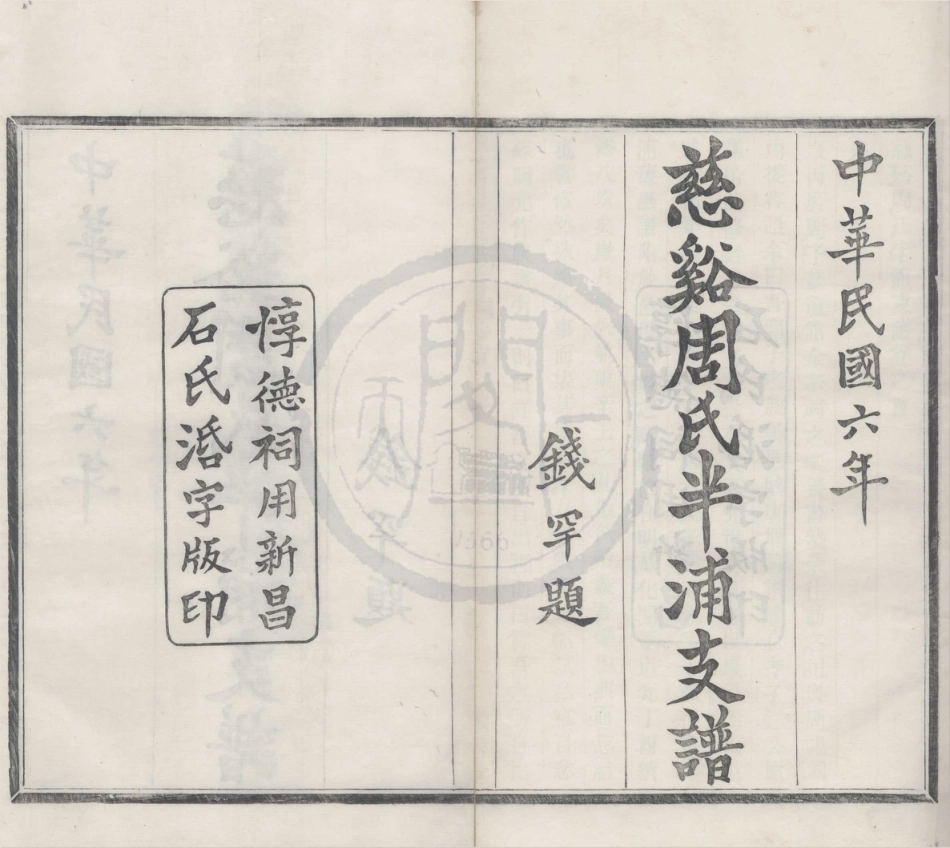 中華民國六年
慈谿周氏半浦支譜
錢罕題
惇德祠用新昌
石氏湉字版印